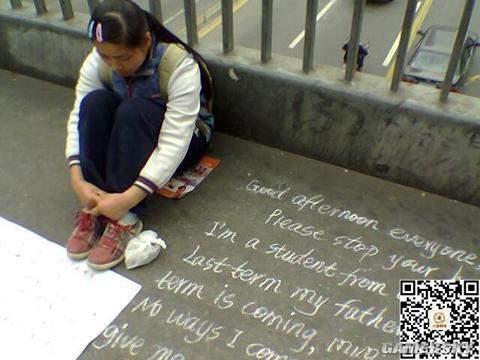 Good afternoon everyone
Please stop your
I'm a student from
Last term my father
term is coming,
No ways I com
give me
GAMERSKY